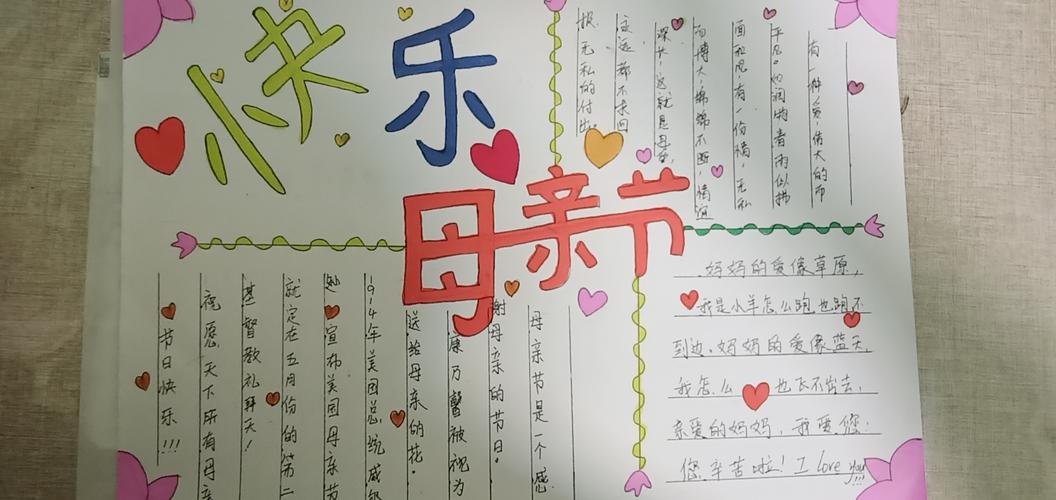 快乐
母亲节
有一种爱，伟大的而
平凡。他润物着雨似拂
面和风。有一份情，无私
而博大，绵绵不断，情谊
深长。这就是母爱，
永远都不求回
报，无私的付出。
母亲节是一个感
谢母亲的节日。
康乃馨被视为
送给母亲的花。
1914年美国总统威
宣布美国母亲节
就定在五月份的第二
基督教礼拜天！
祝愿天下所有母亲
节日快乐!!!
妈妈的爱像草原，
我是小羊怎么跑也跑不
到边。妈妈的爱像蓝天，
我怎么也飞不出去，
亲爱的妈妈，我爱您，
您辛苦啦！I love you!!!